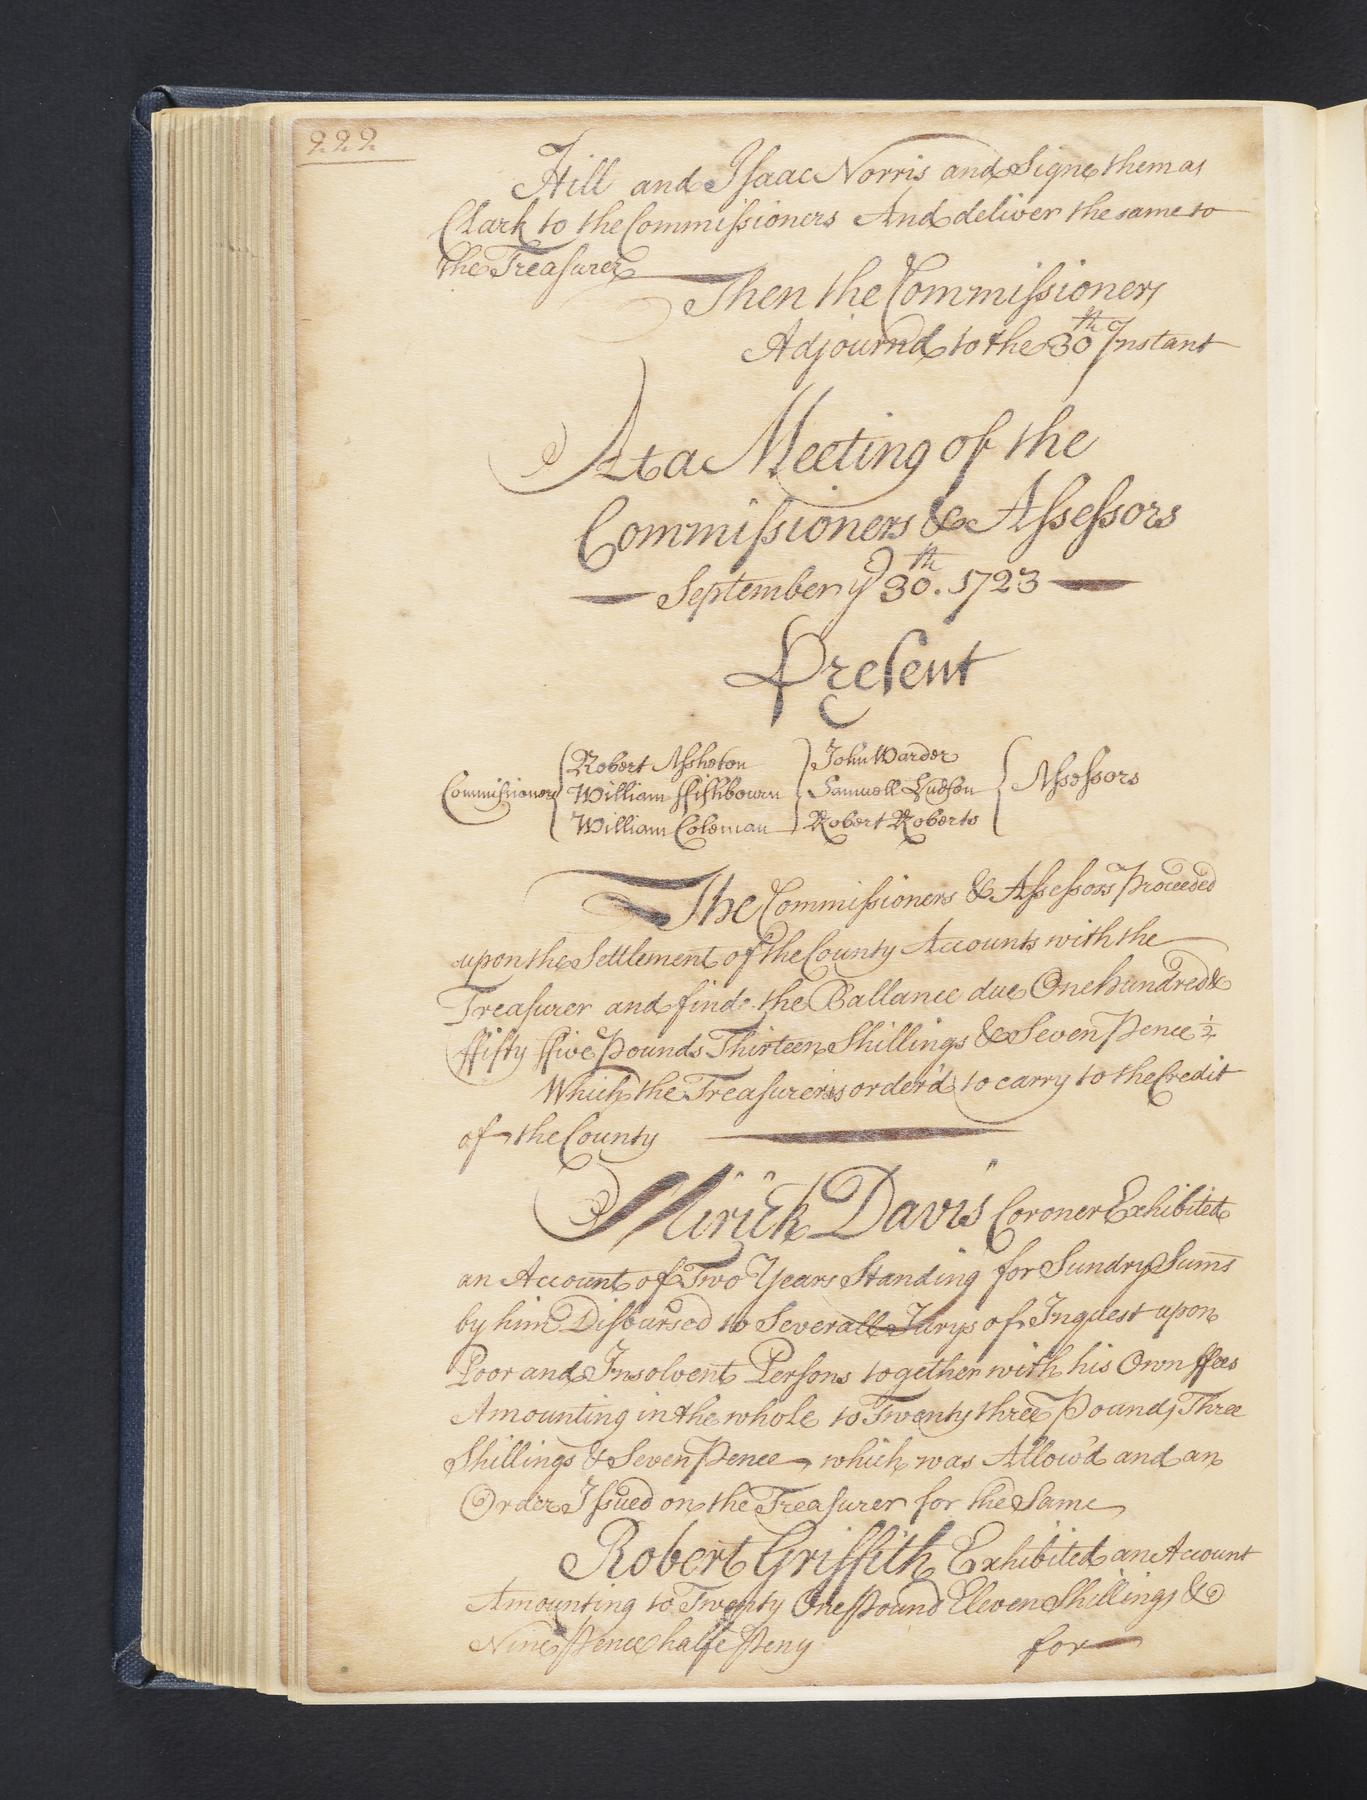 222
Hill and Isaac Norris and Signe them as
Clark to the Commissioners And deliver the same to
the Treasurer
Then the Commissioners
Adjournd to the 30th Instant
At a Meeting of the
Commissioners & Assessors
September ye 30th. 1723
Present
Commissioners { Robert Assheton } John Warder { Assessors
William ffishbourn Samuell Hudson
William Coleman Robert Roberts
The Commissioners & Assessors Proceeded
upon the Settlement of the County Accounts with the
Treasurer and finde the Ballance due One hundred &
ffifty ffive Pounds Thirteen Shillings & Seven Pence ½
Which the Treasurer is order'd to carry to the Credit
of the County
Mirick Davis Coroner Exhibited
an Account of Two Years Standing for Sundry Sums
by him Disbursed to Severall Jurys of Inquest upon
Poor and Insolvent Persons together with his Own ffees
Amounting in the whole to Twenty three Pounds Three
Shillings & Seven Pence which was Allow'd and an
Order Issued on the Treasurer for the Same
Robert Griffith Exhibited an Account
Amounting to Twenty One Pound Eleven Shillings &
Nine Pence halfe Peny for